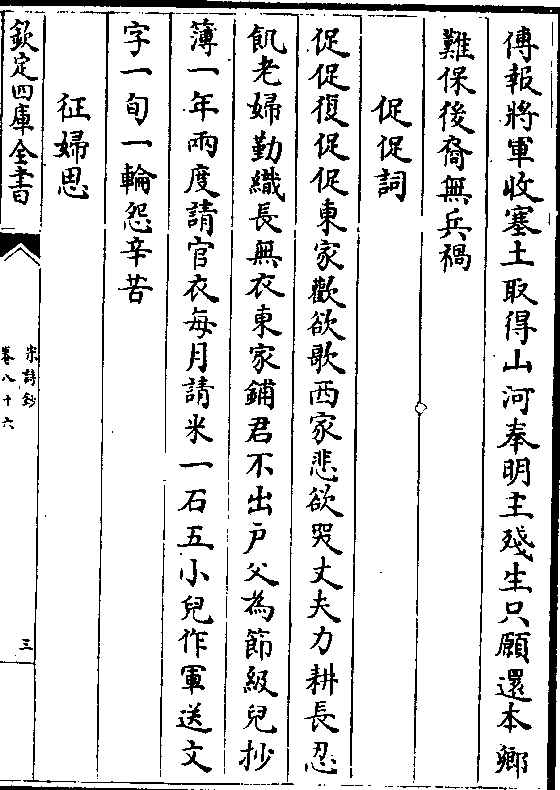 傳報將軍收塞土取得山河奉明主殘生只願還本鄉
難保後裔無兵禍
促促詞
促促復促促東家歡欲歌西家悲欲哭丈夫力耕長忍
飢老婦勤織長無衣東家鋪君不出户父為節級兒抄
簿一年兩度請官衣每月請米一石五小兒作軍送文
字一旬一輪怨辛苦
征婦思
欽定四庫全書
宋詩鈔
卷八十六
三